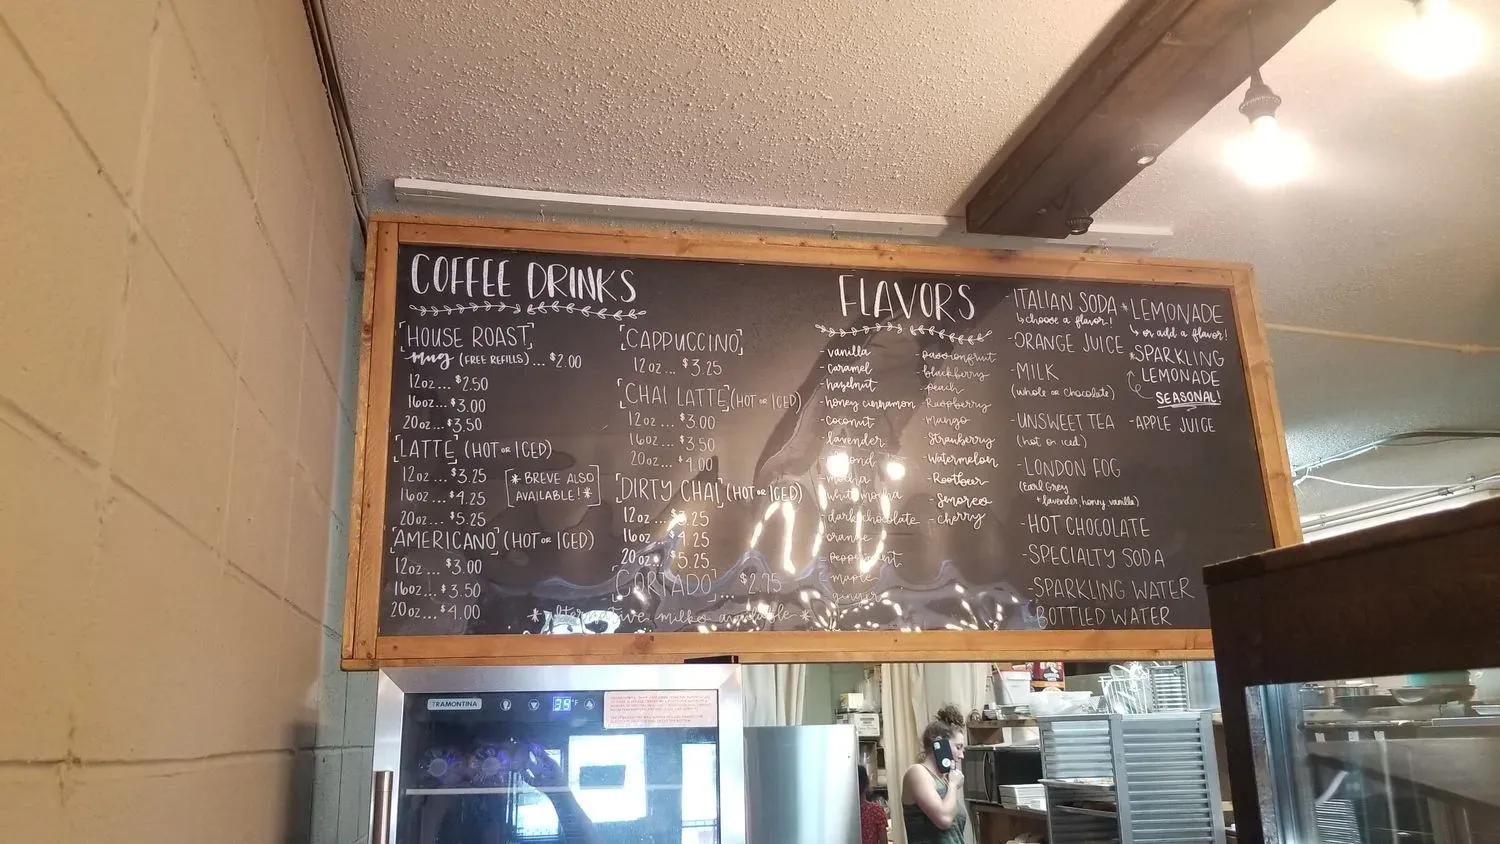 COFFEE DRINKS
[HOUSE ROAST]
Mug (FREE REFILLS) ... $2.00
12oz... $2.50
16oz... $3.00
20oz... $3.50
[LATTE] (HOT OR ICED)
12oz... $3.25
16oz... $4.25
20oz... $5.25
[* BREVE ALSO
AVAILABLE! *]
[AMERICANO] (HOT OR ICED)
12oz... $3.00
16oz... $3.50
20oz... $4.00
[CAPPUCCINO]
12oz... $3.25
[CHAI LATTE] (HOT OR ICED)
12oz... $3.00
16oz... $3.50
20oz... $4.00
[DIRTY CHAI] (HOT OR ICED)
12oz... $3.25
16oz... $4.25
20oz... $5.25
[CORTADO]... $2.75
* alternative milks available *
FLAVORS
- vanilla
- caramel
- hazelnut
- honey cinnamon
- coconut
- lavender
- almond
- mocha
- white mocha
- dark chocolate
- orange
- peppermint
- maple
- ginger
- passionfruit
- blackberry
- peach
- Raspberry
- mango
- Strawberry
- Watermelon
- Rootbeer
- Smores
- cherry
- ITALIAN SODA
choose a flavor!
- ORANGE JUICE
- MILK
(whole or chocolate)
- UNSWEET TEA
(hot or iced)
- LONDON FOG
(Earl Grey
+ lavender, honey, vanilla)
- HOT CHOCOLATE
- SPECIALTY SODA
- SPARKLING WATER
- BOTTLED WATER
* LEMONADE
or add a flavor!
* SPARKLING
LEMONADE
SEASONAL!
- APPLE JUICE
TRAMONTINA
39°F